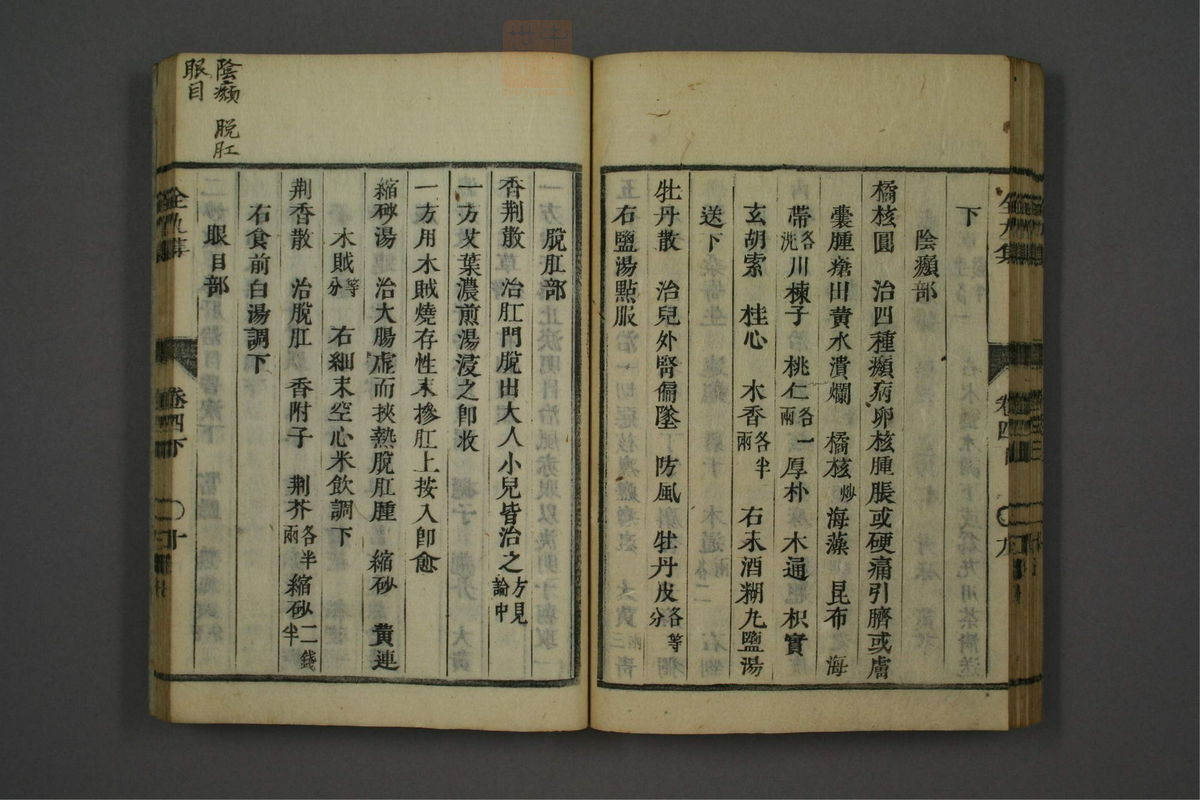 下
陰㿗部
橘核圓　治四種㿗病卵核腫脹或硬痛引臍或膚
囊腫瘡出黃水潰爛　橘核炒　海藻　昆布　海
帶各洗　川楝子　桃仁各一兩　厚朴　木通　枳實
玄胡索　桂心　木香各半兩　右末酒糊丸鹽湯
送下
牡丹散　治兒外腎偏墜　防風　牡丹皮各等分
右鹽湯點服
脫肛部
香荆散　治肛門脫出大人小兒皆治之方見論中
一方艾葉濃煎湯浸之卽收
一方用木賊燒存性末摻肛上按入卽愈
縮砂湯　治大腸虛而挾熱脫肛腫　縮砂　黃連
木賊等分　右細末空心米飲調下
荆香散　治脫肛　香附子　荆芥各半兩　縮砂二錢半
右食前白湯調下
眼目部
陰㿗　脫肛
眼目
全九集
卷四
九
卷四下
十